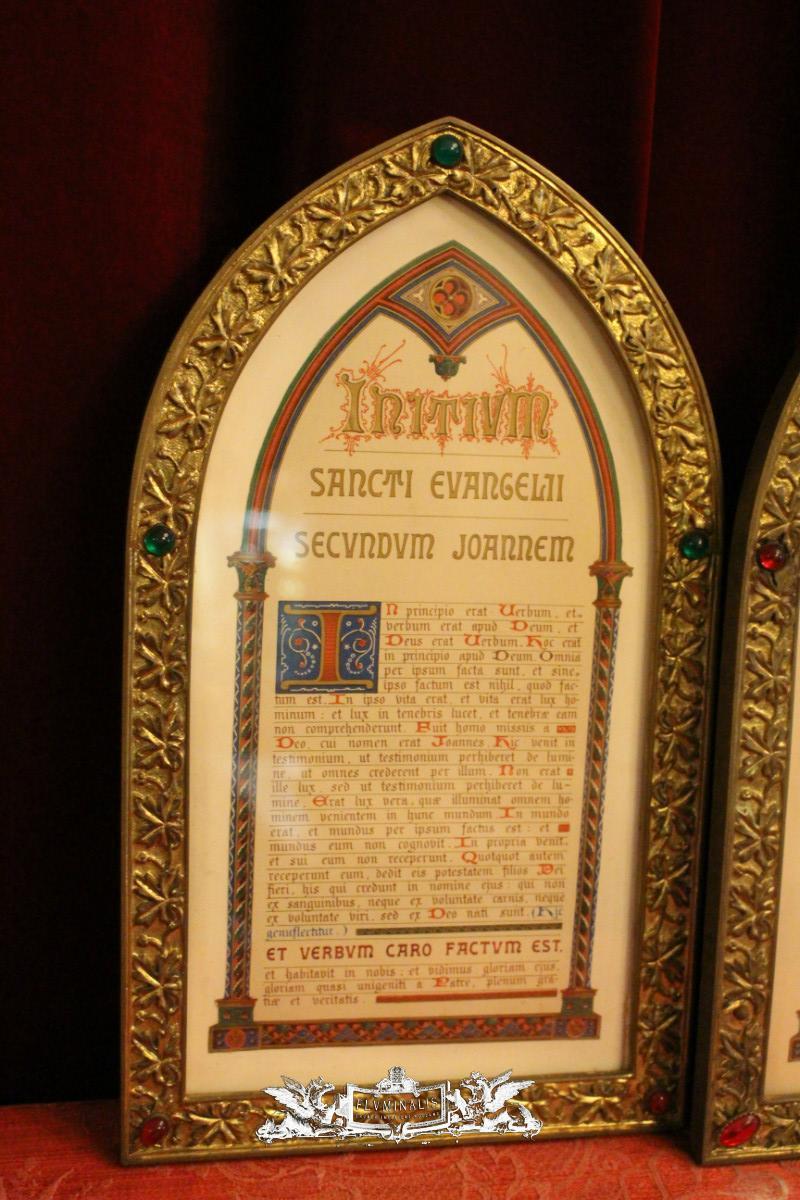 INITIVM
SANCTI EVANGELII
SECVNDVM JOANNEM
In principio erat Verbum, et
verbum erat apud Deum, et
Deus erat Verbum. Hoc erat
in principio apud Deum. Omnia
per ipsum facta sunt, et sine
ipso factum est nihil, quod fac-
tum est. In ipso vita erat, et vita erat lux ho-
minum: et lux in tenebris lucet, et tenebræ eam
non comprehenderunt. Fuit homo missus a
Deo, cui nomen erat Joannes. Hic venit in
testimonium, ut testimonium perhiberet de lumi-
ne, ut omnes crederent per illum. Non erat
ille lux, sed ut testimonium perhiberet de lu-
mine. Erat lux vera, quæ illuminat omnem ho-
minem venientem in hunc mundum. In mundo
erat, et mundus per ipsum factus est: et
mundus eum non cognovit. In propria venit,
et sui eum non receperunt. Quotquot autem
receperunt eum, dedit eis potestatem filios Dei
fieri, his qui credunt in nomine ejus: qui non
ex sanguinibus, neque ex voluntate carnis, neque
ex voluntate viri, sed ex Deo nati sunt. (Hic
genuflectitur.)
ET VERBVM CARO FACTVM EST.
et habitavit in nobis: et vidimus gloriam ejus,
gloriam quasi unigeniti a Patre, plenum gra-
tiæ et veritatis.
FLVMINALIS